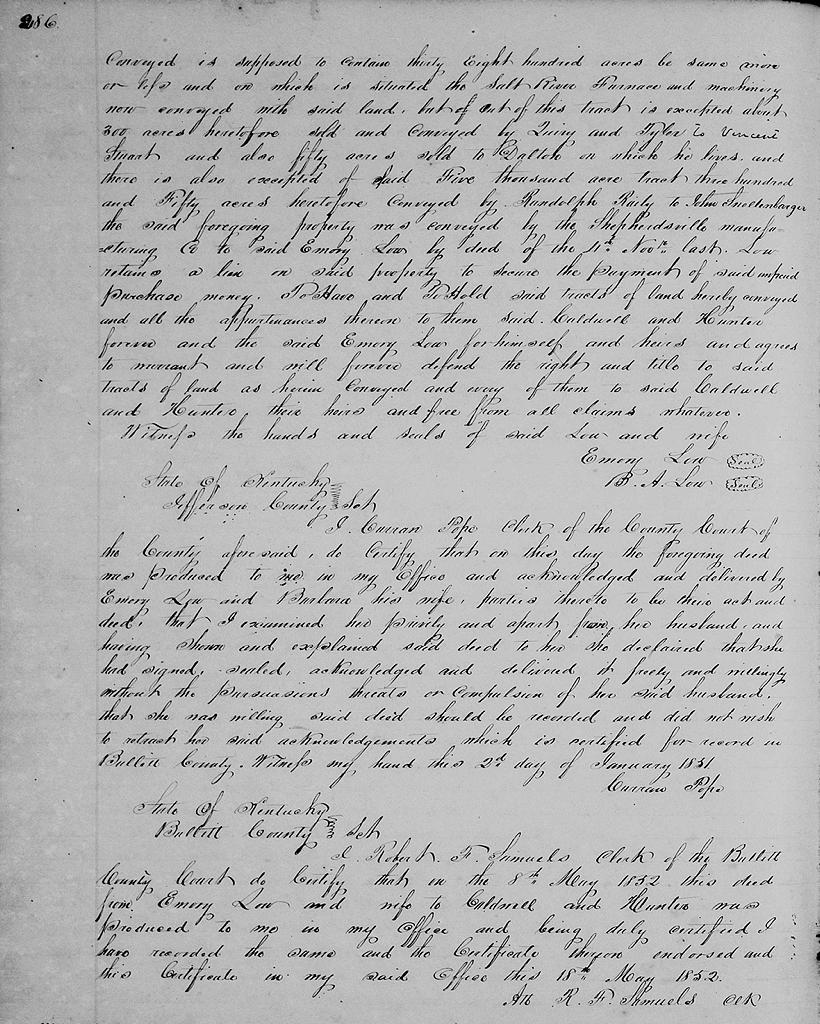 286
Conveyed is supposed to contain thirty Eight hundred acres be same more
or less and on which is situated the Salt River Furnace and machinery
now conveyed with said land, but of out of this tract is excepted about
300 acres heretofore sold and conveyed by Quirey and Tyler to Vincent
Stuart and also fifty acres sold to Dalton on which he lives. and
there is also excepted of said Five thousand acre tract three hundred
and Fifty acres heretofore Conveyed by Randolph Raily to John Snellenbarger
the said foregoing property was conveyed by the Shepherdsville manufa-
cturing Co to said Emory Low by deed of the 4th Novr. last. Low
retains a lien on said property to secure the payment of said unpaid
purchase money. To Have and To Hold said tracts of land hereby conveyed
and all the appurtenances thereon to them said Caldwell and Hunter
forever and the said Emory Low for himself and heirs and agrees
to warrant and will forever defend the right and title to said
tracts of land as herein Conveyed and every of them to said Caldwell
and Hunter, their heirs and free from all claims whatever.
Witness the hands and seals of said Low and wife
Emory Low Seal
B. A. Low Seal
State Of Kentucky
Jefferson County Sct
I Curran Pope Clerk of the County Court of
the County aforesaid, do Certify that on this day the foregoing deed
was produced to me in my Office and acknowledged and delivered by
Emory Low and Barbara his wife, parties thereto to be their act and
deed, that I examined her privily and apart from her husband, and
having shown and explained said deed to her she declaired that she
had signed, sealed, acknowledged and delivered it freely and willingly
without the pursuasions threats or compulsion of her said husband.
that she was willing said deed should be recorded and did not wish
to retract her said acknowledgements which is certified for record in
Bullitt County. Witness my hand this 2d day of January 1851
Curran Pope
State Of Kentucky
Bullitt County Sct
I. Robert. F. Samuels Clerk of the Bullitt
County Court do Certify that on the 8th May 1852 this deed
from Emory Low and wife to Caldwell and Hunter was
produced to me in my Office and being duly certified I
have recorded the same and the Certificate thereon endorsed and
this Certificate in my said Office this 18th May 1852.
Att R. F. Samuels Clk